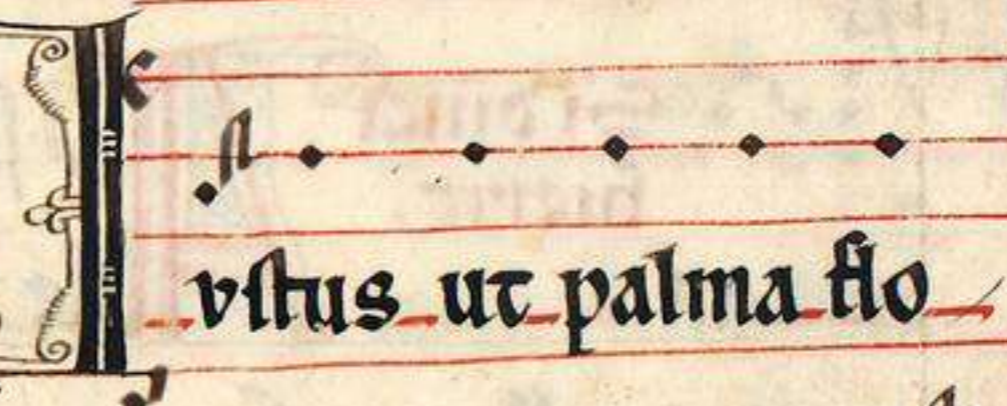 Iustus ut palma flo